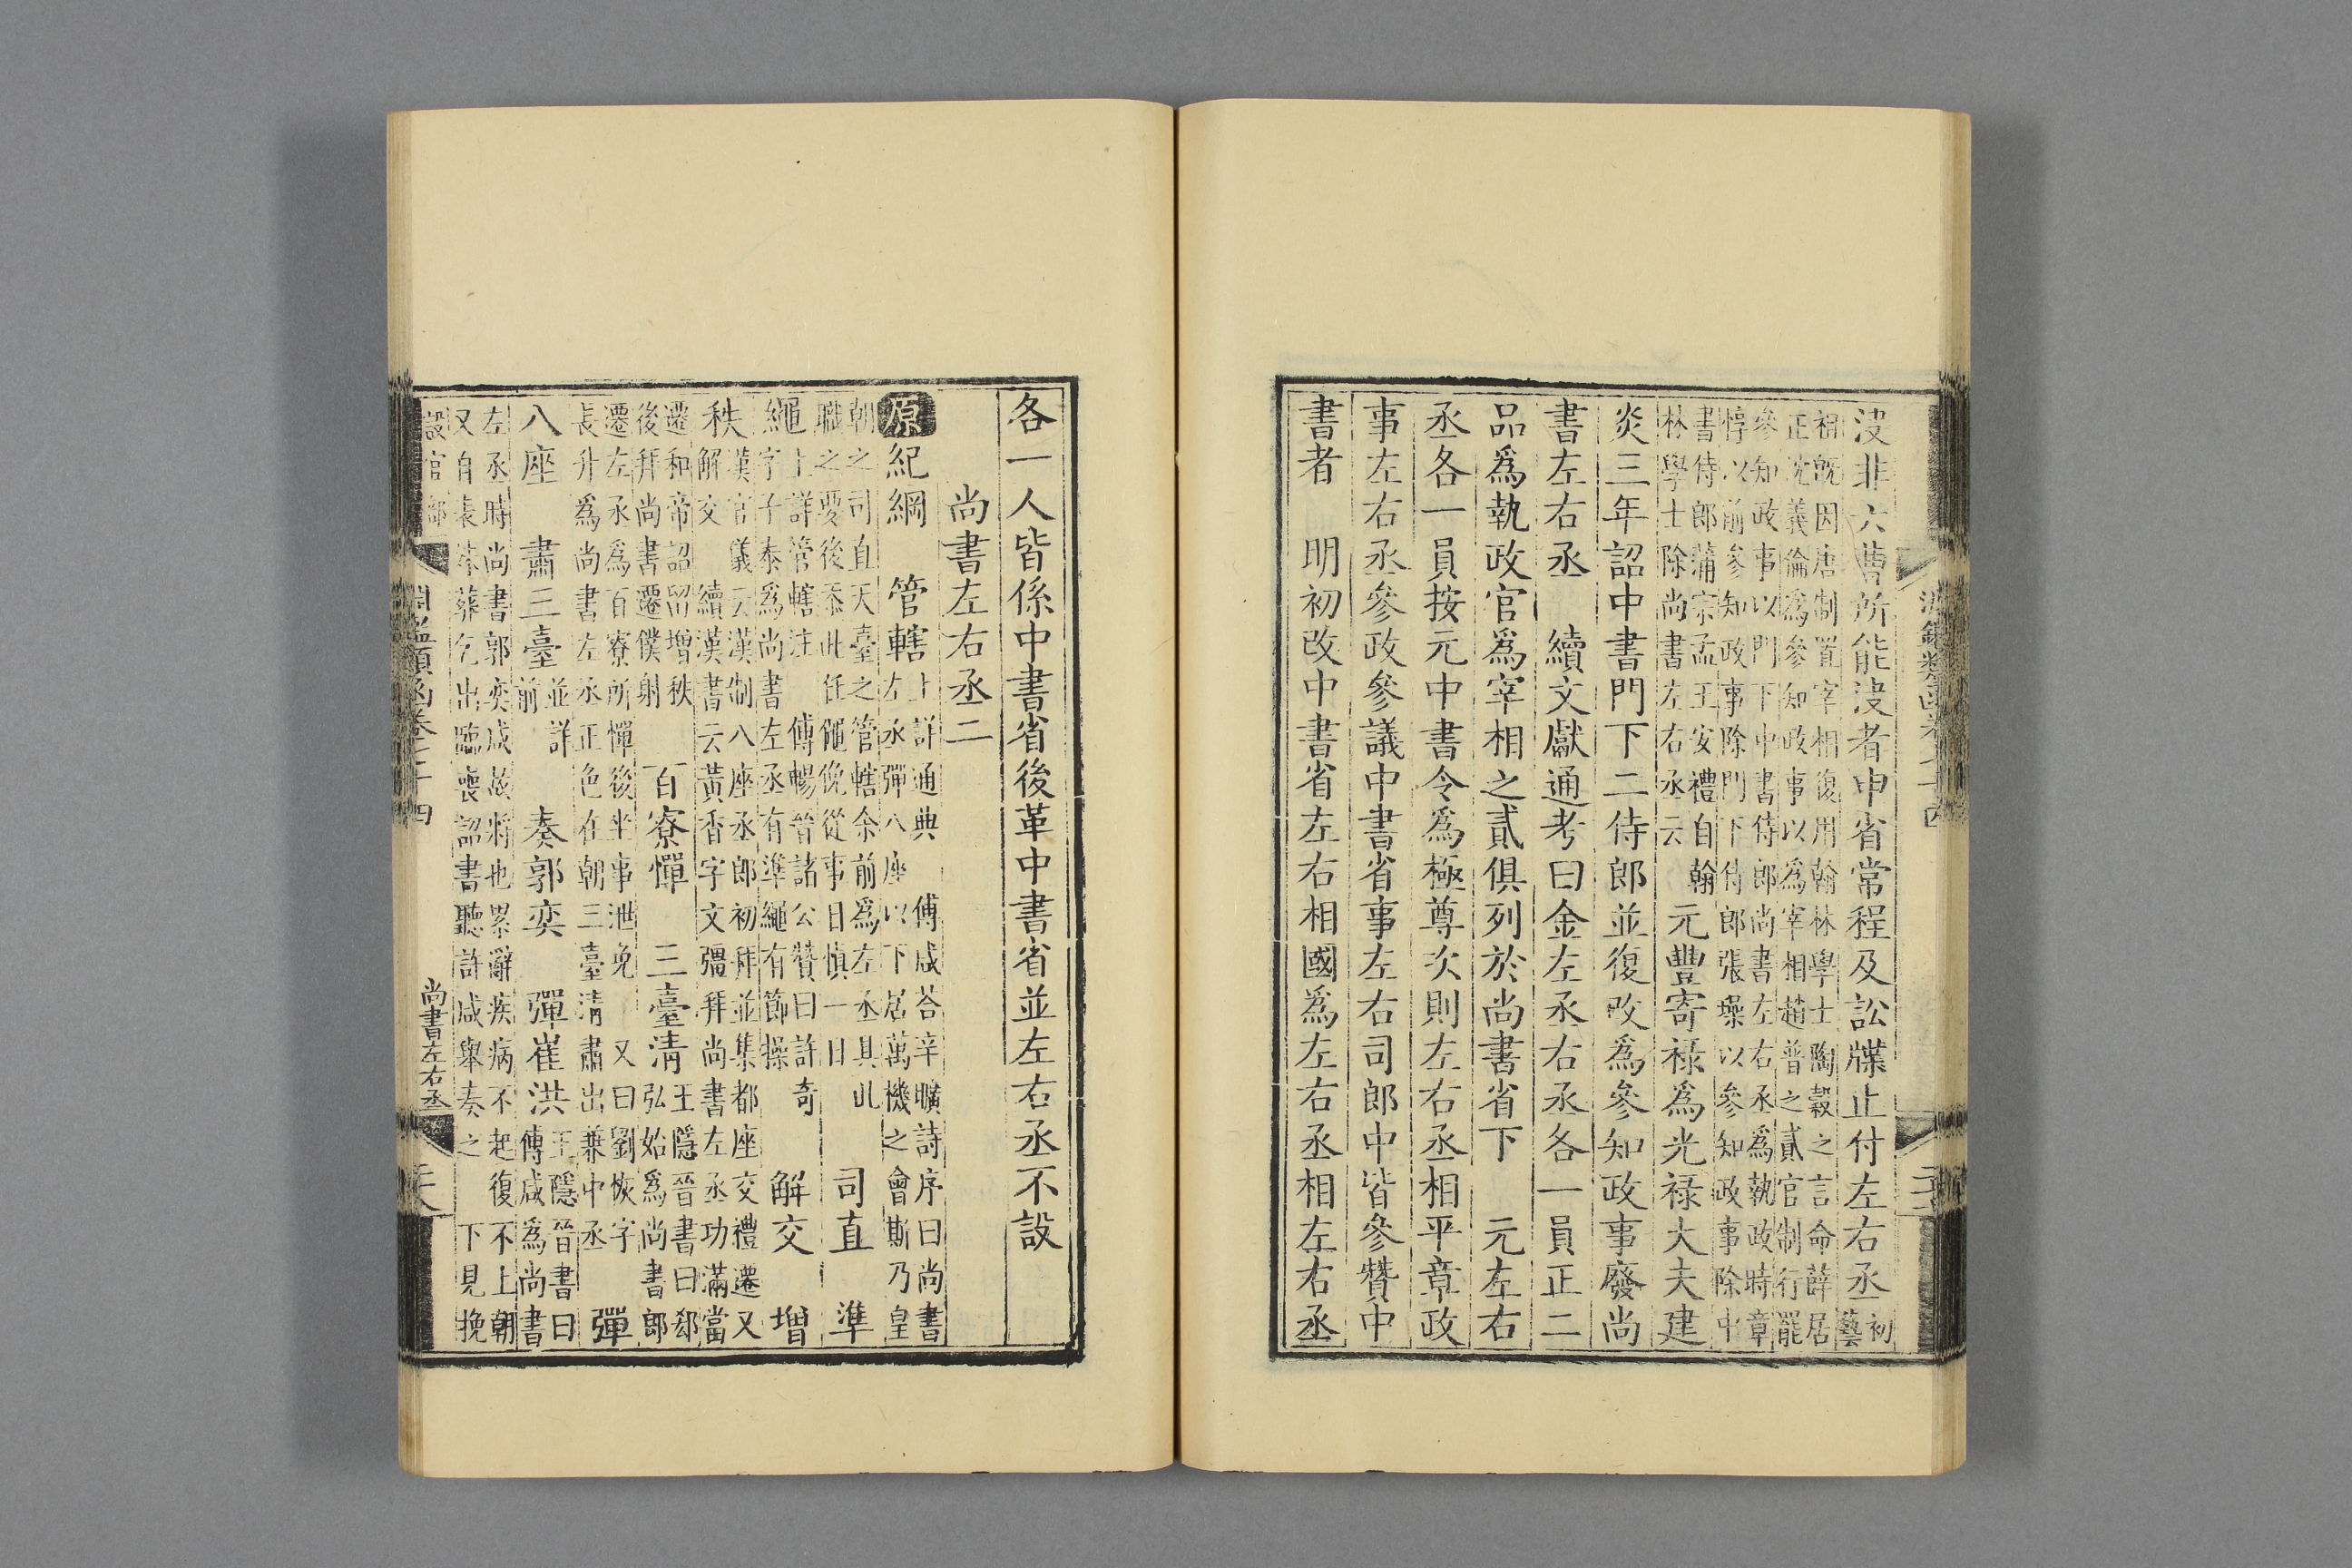 沒非六曹所能沒者申省常程及訟牒止付左右丞初藝
祖旣因唐制置宰相復用翰林學士陶穀之言命薛居
正沈義倫爲參知政事以爲宰相趙普之貳官制行罷
參知政事以門下中書侍郎尚書左右丞爲執政時章
惇以前參知政事除門下侍郎張璪以參知政事除中
書侍郎蒲宗孟王安禮自翰
林學士除尚書左右丞云
元豐寄祿爲光祿大夫建
炎三年詔中書門下二侍郎並復改爲參知政事廢尚
書左右丞 續文獻通考曰金左丞右丞各一員正二
品爲執政官爲宰相之貳俱列於尚書省下 元左右
丞各一員按元中書令爲極尊次則左右丞相平章政
事左右丞參政參議中書省事左右司郎中皆參贊中
書者 明初改中書省左右相國爲左右丞相左右丞
各一人皆係中書省後革中書省並左右丞不設
尚書左右丞二
原紀綱 管轄上詳通典 傅咸荅辛曠詩序曰尚書
左丞彈八座以下居萬機之會斯乃皇
朝之司直天臺之管轄余前爲左丞具此
職之要後忝此任僶俛從事日慎一日
司直 準
繩上詳管轄注 傅暢晉諸公贊曰許奇
字子泰爲尚書左丞有準繩有節操
解交 增
秩漢官儀云漢制八座丞郎初拜並集都座交禮遷又
解交 續漢書云黃香字文彊拜尚書左丞功滿當
遷和帝詔留增秩
後拜尚書遷僕射
百寮憚 三臺清王隱晉書曰郄
弘始爲尚書郎
遷左丞爲百寮所憚後坐事泄免 又曰劉恢字
長升爲尚書左丞正色在朝三臺清肅出兼中丞
彈
八座 肅三臺並詳
前
奏郭奕 彈崔洪王隱晉書曰
傅咸爲尚書
左丞時尚書郭奕咸故將也累辭疾病不起復不上朝
又自表葬乞出臨喪詔書聽許咸舉奏之 下見挽
設官部
淵鑑類函卷七十四
尚書左右丞